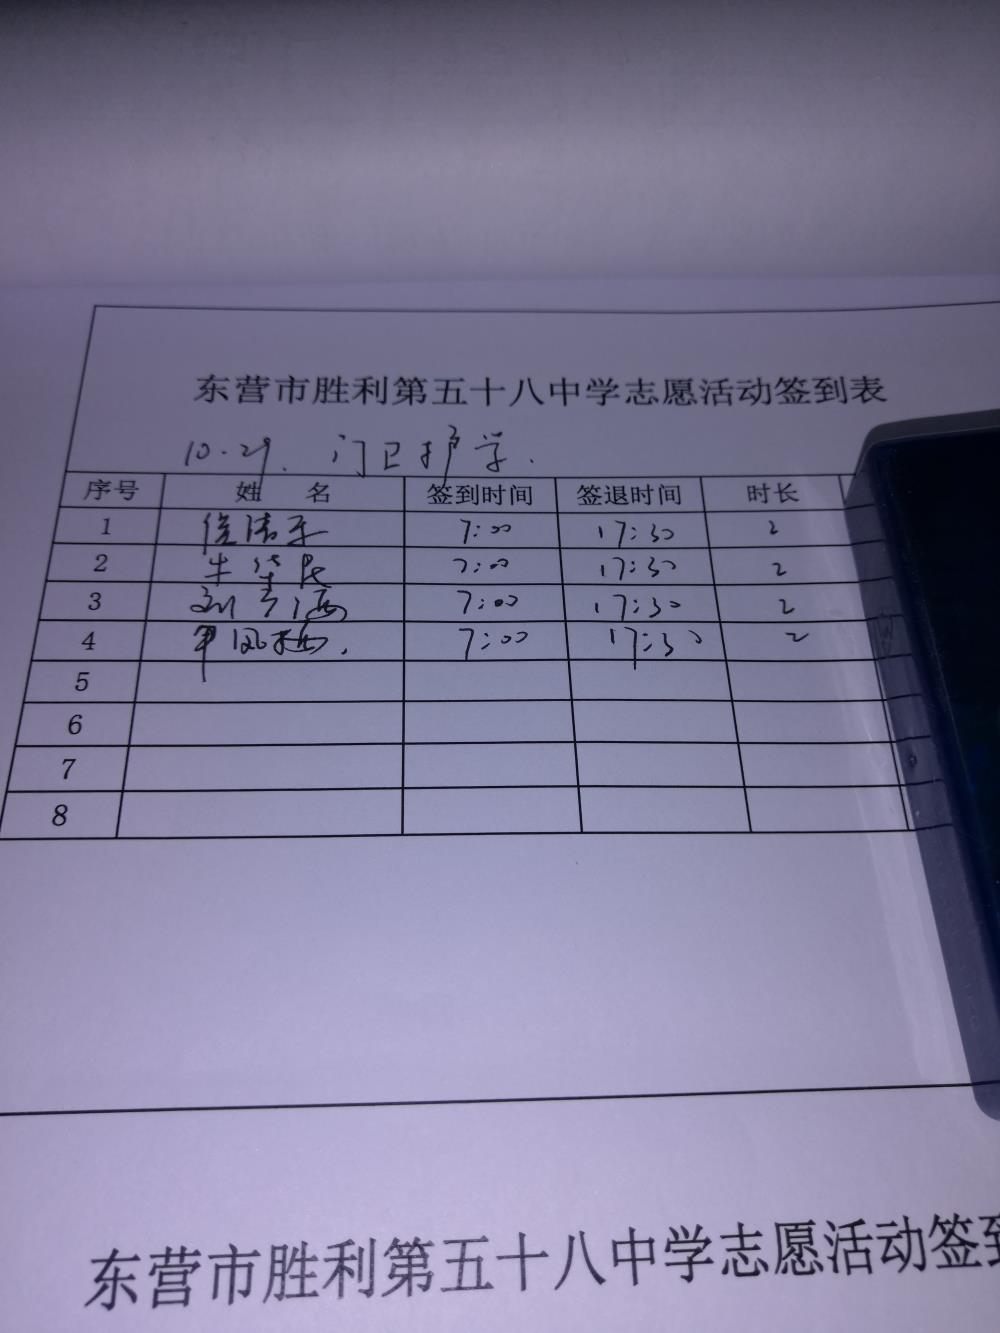 东营市胜利第五十八中学志愿活动签到表
10.29. 门卫护学.
序号 姓 名 签到时间 签退时间 时长
1 7:00 17:30 2
2 7:00 17:30 2
3 刘 7:00 17:30 2
4 7:00 17:30 2
5
6
7
8
东营市胜利第五十八中学志愿活动签到